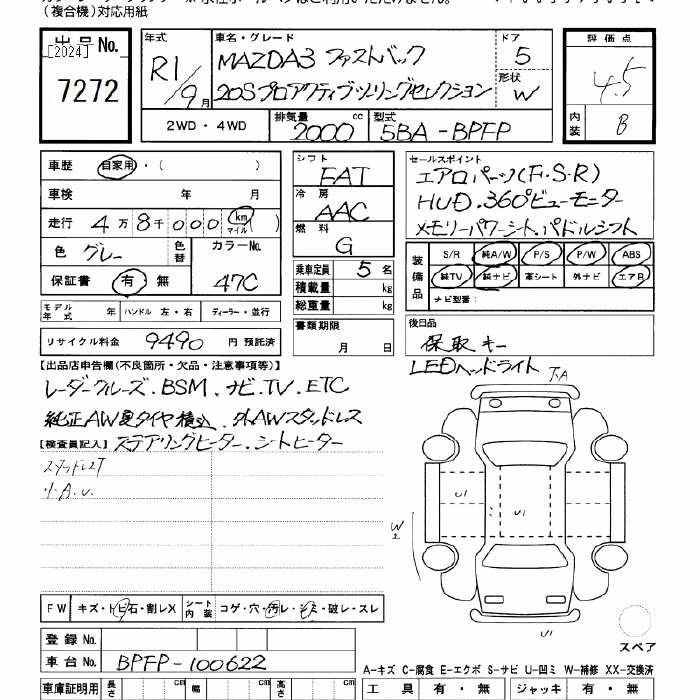 （複合機）対応用紙
出品No.
[2024]
7272
年式
R1/9月
車名・グレード
MAZDA3 ファストバック
20Sプロアクティブツーリングセレクション
ドア
5
形状
W
2WD・4WD
排気量
2000 cc
型式
5BA-BPFP
評価点
4.5
内装
B
車歴 自家用・（ ）
車検 年 月
走行 4万8千000 km マイル
色 グレー 色替 カラーNo. 47C
保証書 有・無
モデル年式 年 ハンドル 左・右 ディーラー・並行
リサイクル料金 9490 円 預託済
シフト
FAT
冷房
AAC
燃料
G
乗車定員 5 名
積載量 kg
総重量 kg
書類期限
月 日
セールスポイント
エアロパーツ(F.S.R)
HUD.360°ビューモニター
メモリーパワーシート.パドルシフト
装備品
S/R 純A/W P/S P/W ABS
純TV 純ナビ 革シート 外ナビ エアB
ナビ型番：
後日品
保取 キー
LEDヘッドライト
【出品店申告欄(不良箇所・欠品・注意事項等)】
レーダークルーズ.BSM.ナビ.TV.ETC
純正AW夏タイヤ積込.外AWスタッドレス
【検査員記入】ステアリングヒーター.シートヒーター
スタッドレス
小A.U.
下A
U1
U1
W2
U1
スペア
FW キズ・トビ石・割レX シート内装 コゲ・穴・汚レ・シミ・破レ・スレ
登録No.
車台No. BPFP-100622
車庫証明用 長さ cm 幅 cm 高さ cm
A-キズ C-腐食 E-エクボ S-サビ U-凹ミ W-補修 XX-交換済
工具 有・無 ジャッキ 有・無